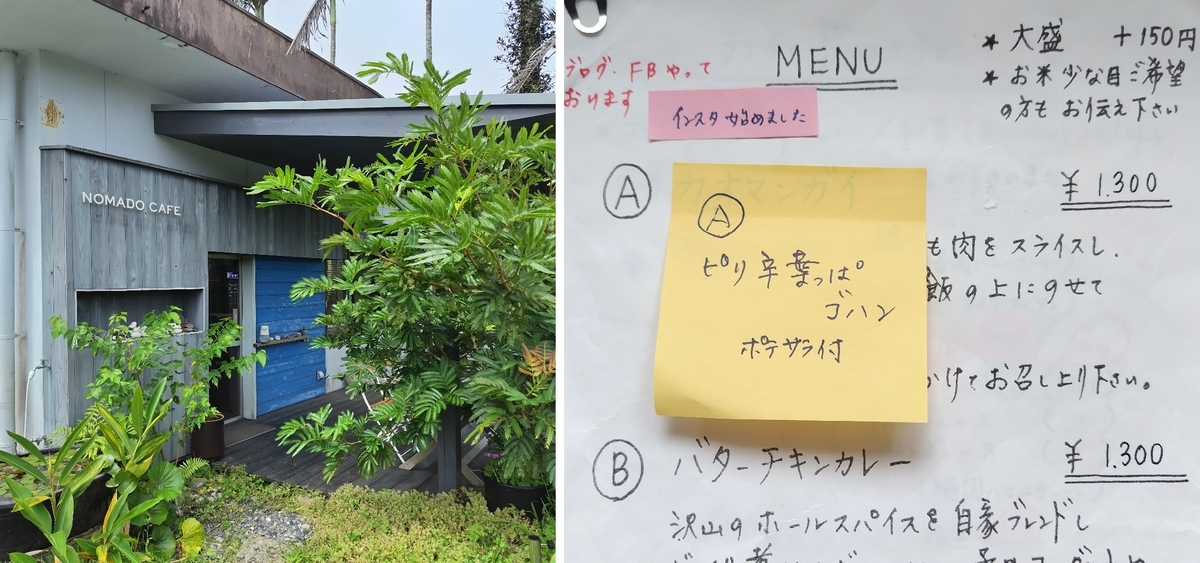 NOMADO CAFE
MENU
* 大盛 +150円
* お米少な目ご希望
の方も お伝え下さい
ブログ、FBやって
おります
インスタ始めました
Ⓐ カオマンガイ ¥1.300
Ⓐ
ピリ辛葉っぱ
ゴハン
ポテサラ付
も肉をスライスし、
飯の上にのせて
かけてお召し上り下さい。
Ⓑ バターチキンカレー ¥1.300
沢山のホールスパイスを自家ブレンドし